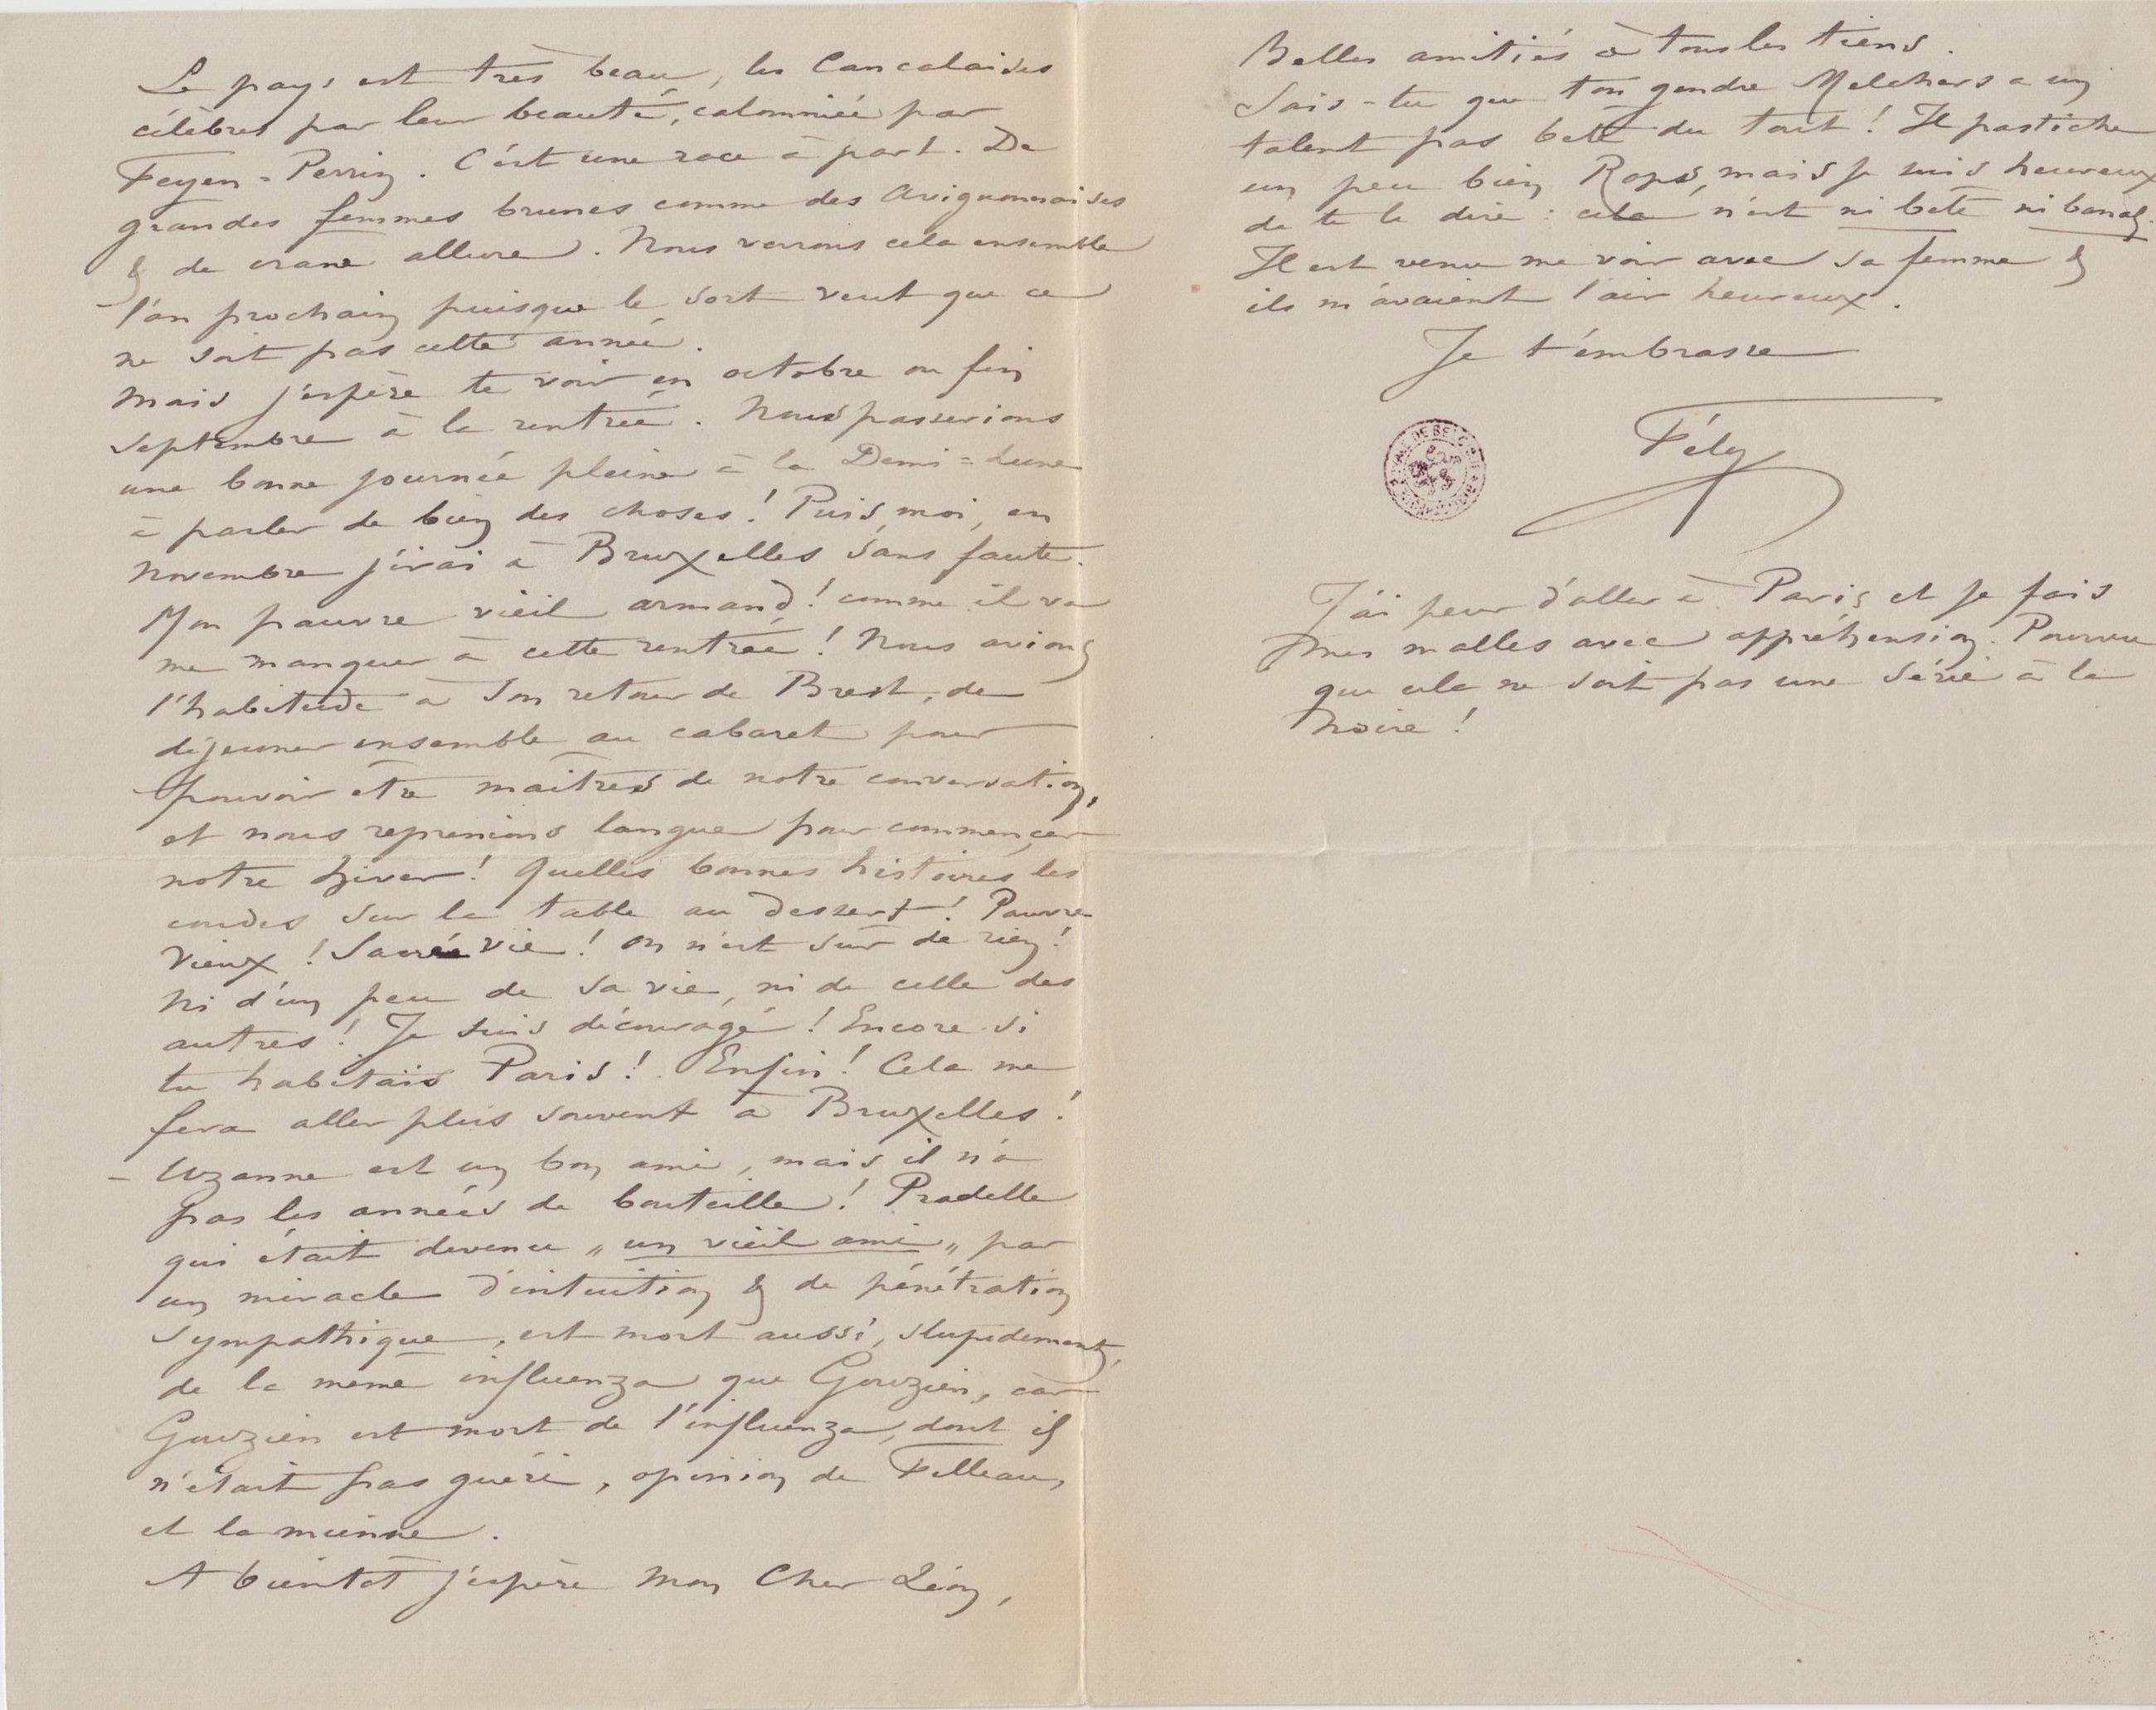 Le pays est très beau, les Cancalaises
célèbres par leur beauté, calomniée par
Feyen-Perrin. C'est une race à part. De
grandes femmes brunes comme des Avignonnaises
& de crane allure. Nous verrons cela ensemble
l'an prochain puisque le sort veut que ce
ne soit pas cette année.
Mais j'espère te voir en octobre ou fin
septembre à la rentrée. Nous passerions
une bonne journée pleine à la Demi=Lune
à parler de bien des choses! Puis, moi, en
novembre j'irai à Bruxelles sans faute.
Mon pauvre vieil Armand! comme il va
me manquer à cette rentrée! Nous avions
l'habitude à son retour de Brest, de
déjeuner ensemble au cabaret pour
pouvoir être maîtres de notre conversation,
et nous reprenions langue pour commençer
notre hiver! Quelles bonnes histoires les
coudes sur la table au dessert! Pauvre
vieux! Sacrée vie! On n'est sûr de rien!
Ni d'un peu de sa vie, ni de celle des
autres! Je suis découragé! Encore si
tu habitais Paris! Enfin! Cela me
fera aller plus souvent à Bruxelles!
– Uzanne est un bon ami, mais il n'a
pas les années de bouteille! Pradelle
qui était devenu „un vieil ami„ par
un miracle d'intuition & de pénétration
sympathique, est mort aussi, stupidement,
de la même influenza que Gouzien, car
Gouzien est mort de l'influenza, dont il
n'était pas guéri, opinion de Filleau,
et la mienne.
A bientôt j'espère mon Cher Léon,
Belles amitiés à tous les tiens.
Sais-tu que ton gendre Melchers a un
talent pas bête du tout! Il pastiche
un peu bien Rops, mais je suis heureux
de te le dire: cela n'est ni bête ni banal.
Il est venu me voir avec sa femme &
ils m'avaient l'air heureux.
Je t'embrasse
Fély
J'ai peur d'aller à Paris et je fais
mes malles avec appréhension. Pourvu
que cela ne soit pas une série à la
noire!